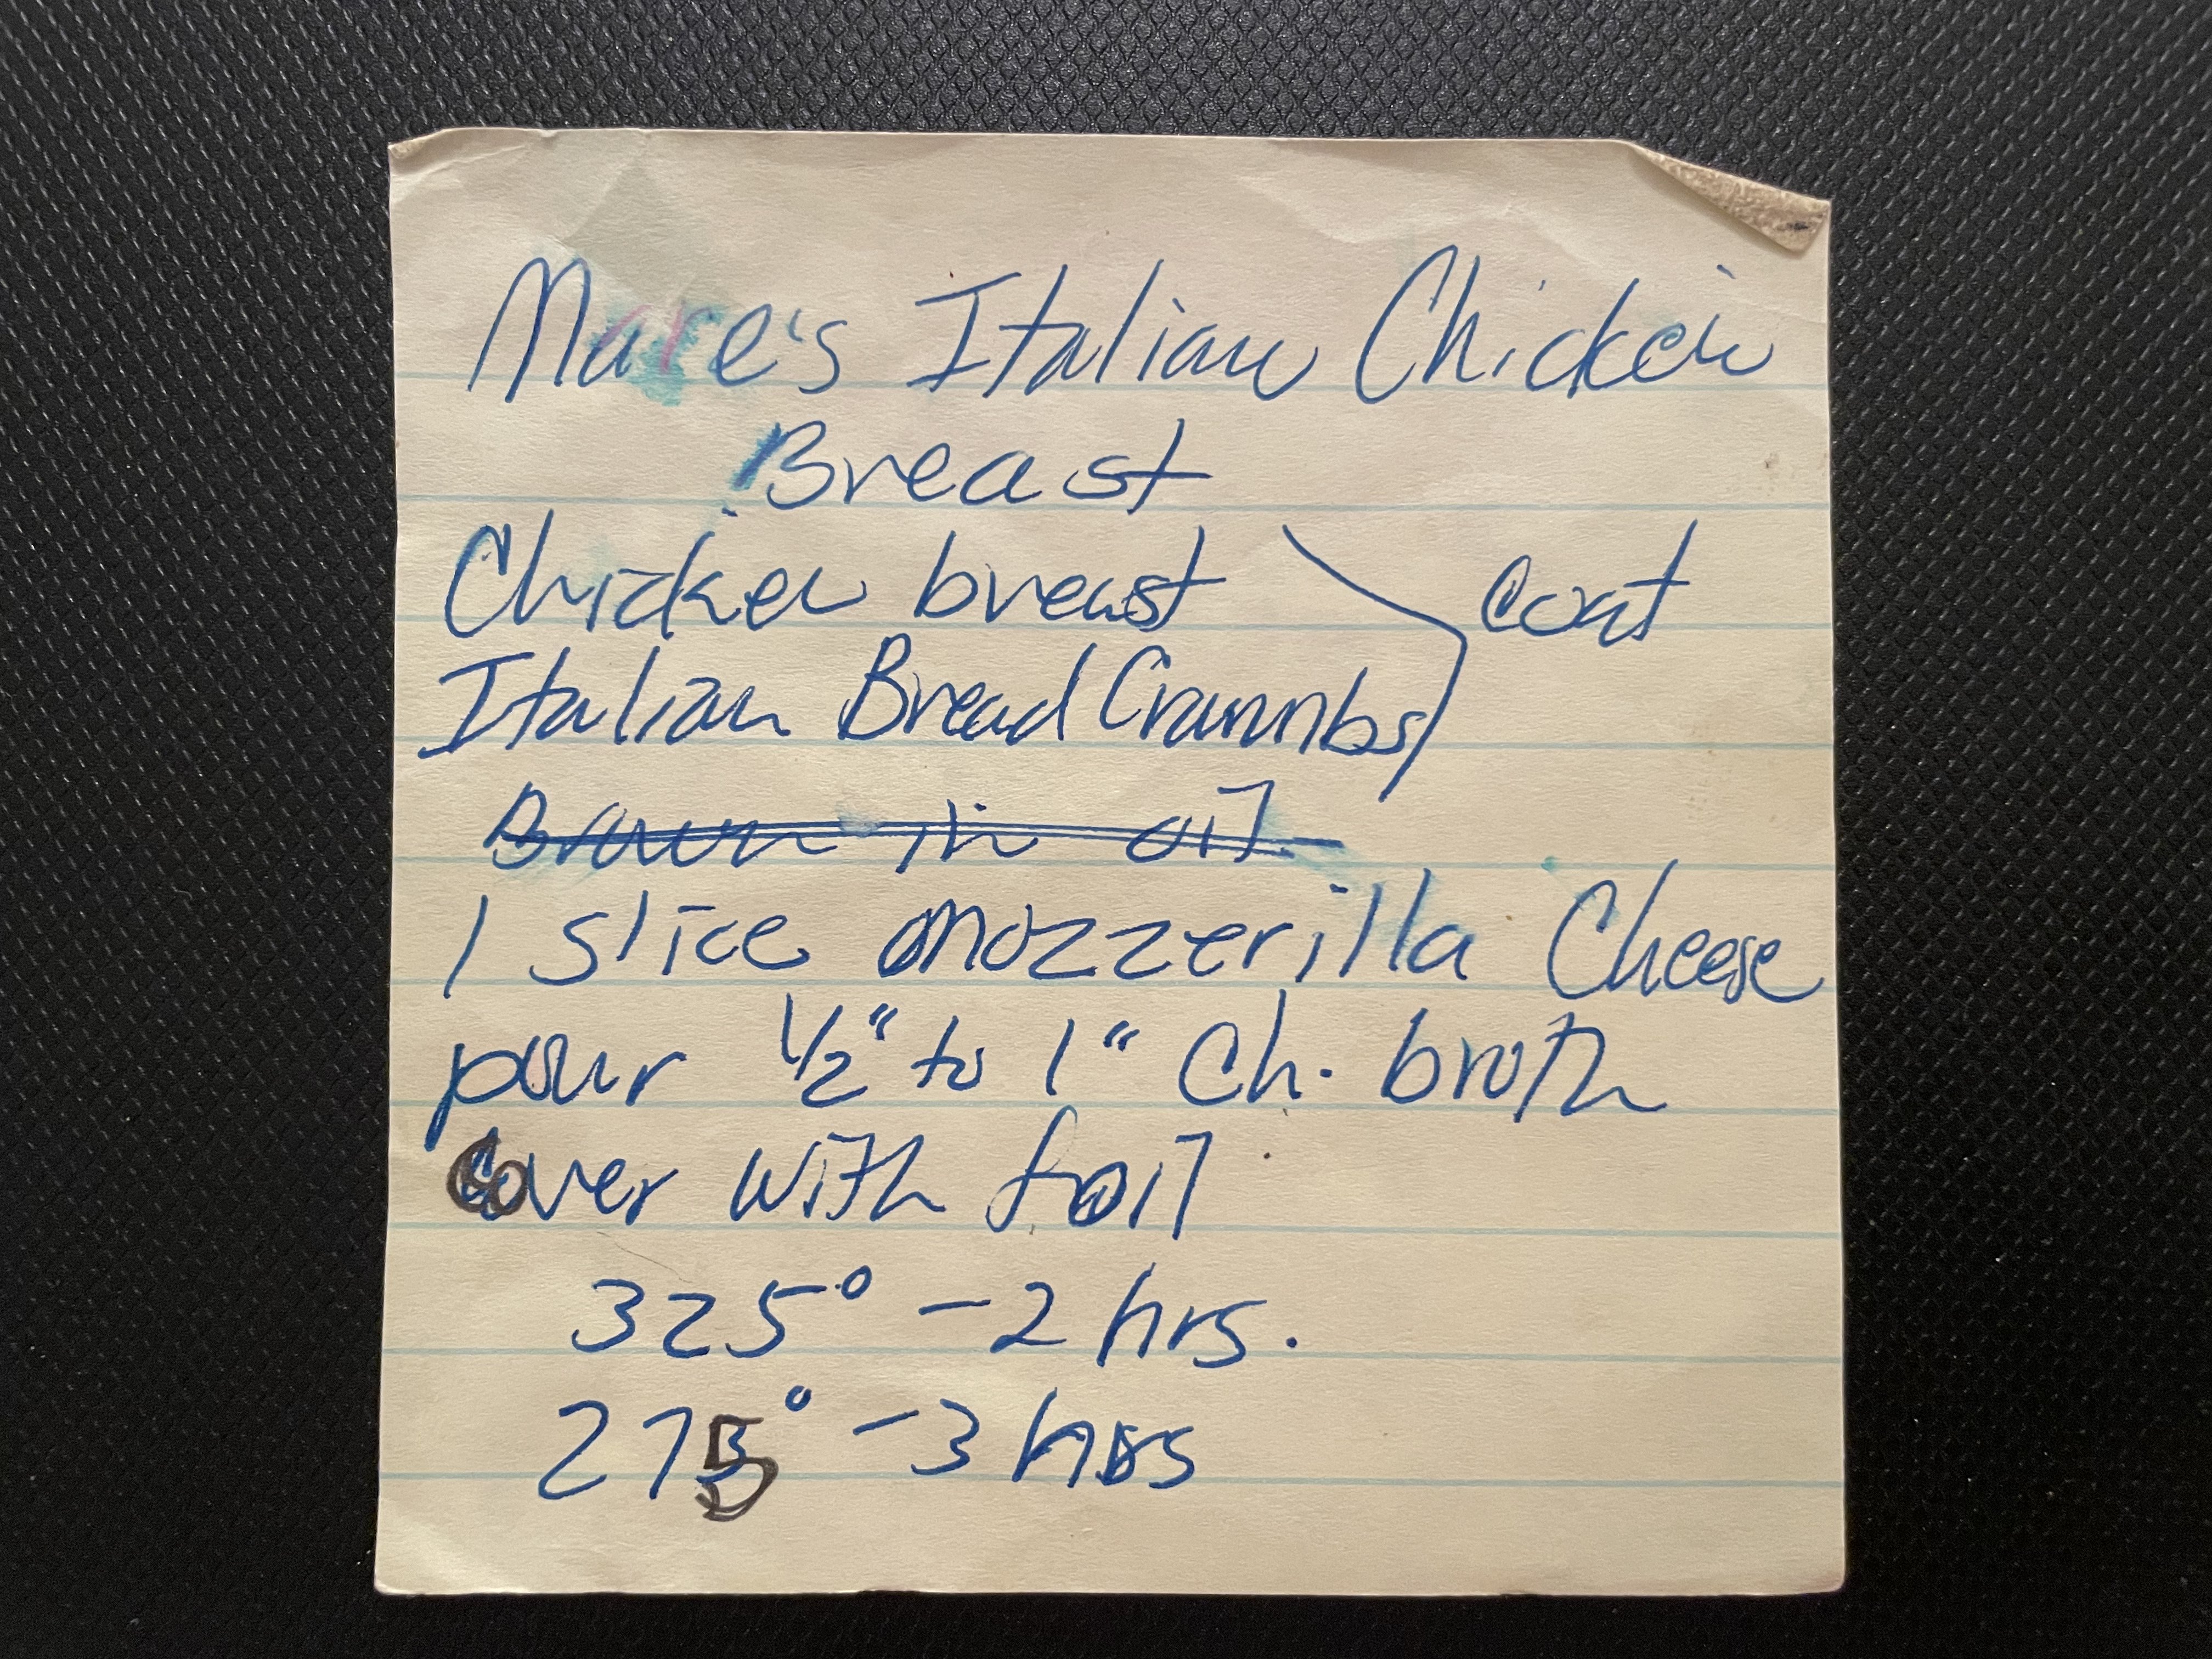 Mare's Italian Chicken
Breast
Chicken breast
coat
Italian Bread Crumbs
Brown in oil
1 slice mozzerilla Cheese
pour 1/2" to 1" Ch. broth
Cover with foil
325° - 2 hrs.
275° - 3 hrs